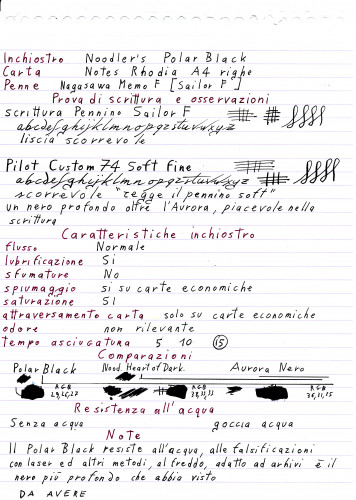 Inchiostro Noodler's Polar Black
Carta Notes Rhodia A4 righe
Penne Nagasawa Memo F [Sailor F]
Prova di scrittura e osservazioni
scrittura Pennino Sailor F
abcdefghijklmnopqrstuvwxyz
liscia scorrevole
Pilot Custom 74 Soft Fine
abcdefghijklmnopqrstuvwxyz
scorrevole "regge il pennino soft"
un nero profondo oltre l'Aurora, piacevole nella
scrittura
Caratteristiche inchiostro
flusso Normale
lubrificazione Si
sfumature No
spiumaggio si su carte economiche
saturazione SI
attraversamento carta solo su carte economiche
odore non rilevante
tempo asciugatura 5 10 15
Comparazioni
Polar Black Nood. Heart of Dark. Aurora Nero
RGB RGB RGB
Resistenza all'acqua
Senza acqua goccia acqua
Note
Il Polar Black resiste all'acqua, alle falsificazioni
con laser ed altri metodi, al freddo, adatto ad archivi è il
nero più profondo che abbia visto
DA AVERE